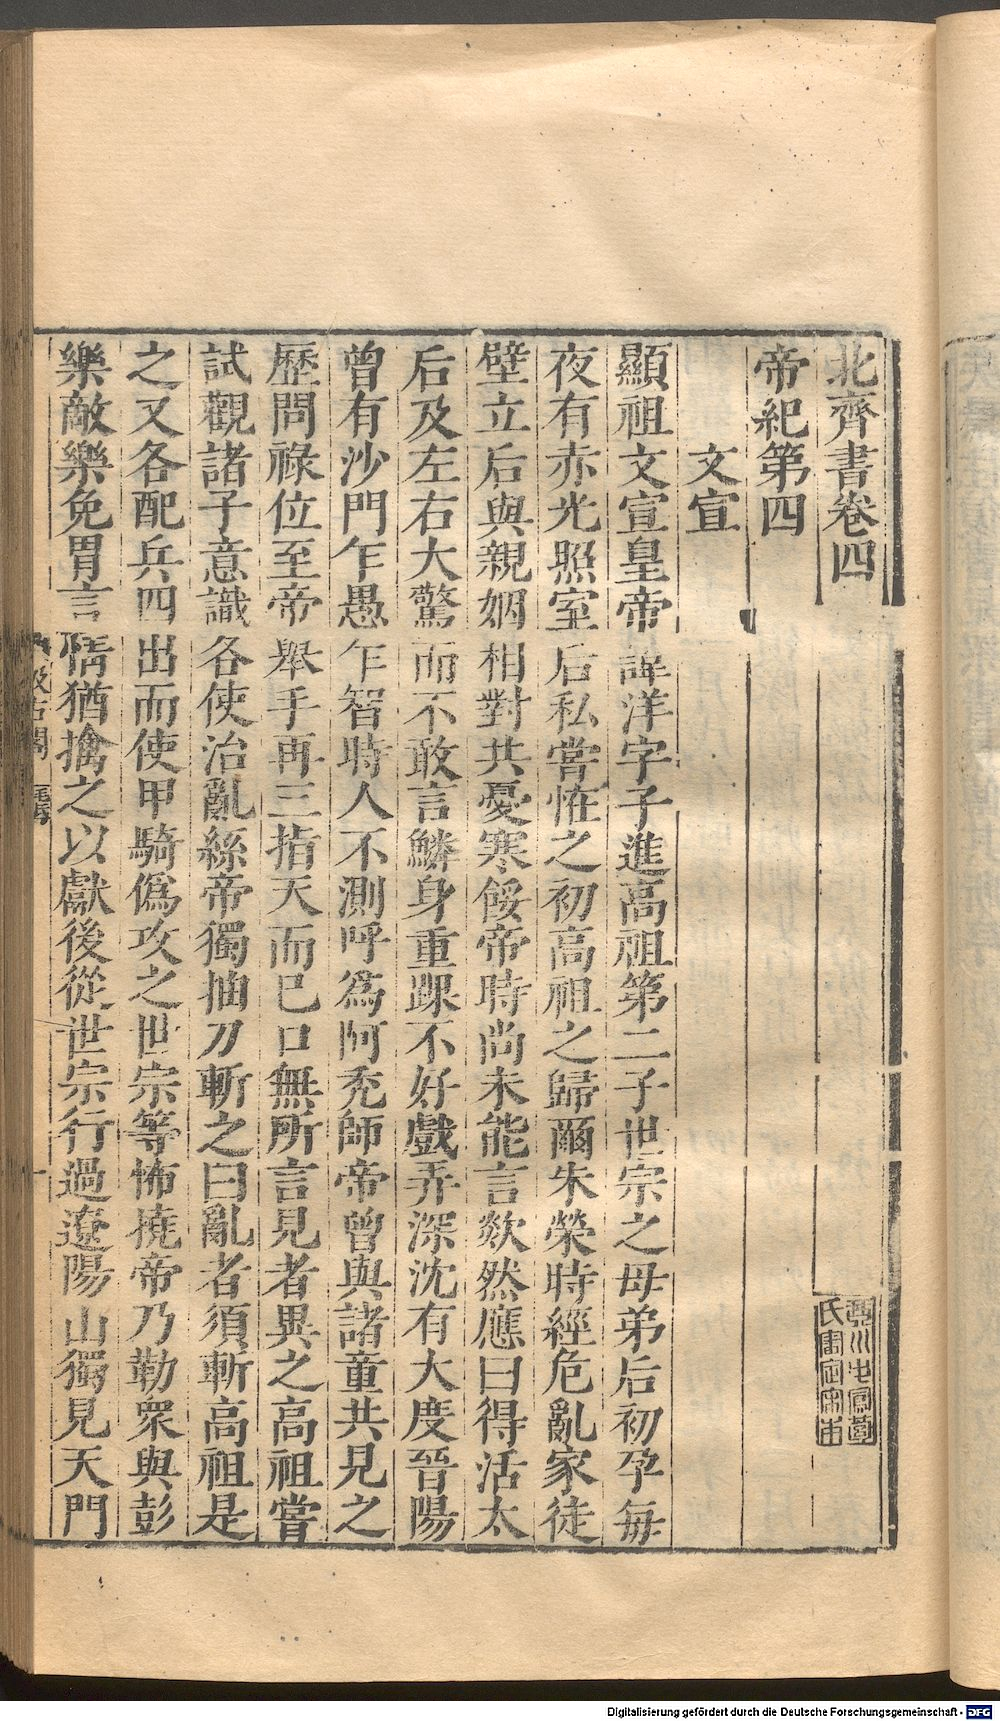 北齊書卷四
帝紀第四
文宣
顯祖文宣皇帝諱洋字子進高祖第二子世宗之母弟后初孕每
夜有赤光照室后私嘗怪之初高祖之歸爾朱榮時經危亂家徒
壁立后與親姻相對共憂寒餒帝時尚未能言欻然應曰得活太
后及左右大驚而不敢言鱗身重踝不好戲弄深沈有大度晉陽
曾有沙門乍愚乍智時人不測呼爲阿禿師帝曾與諸童共見之
歷問祿位至帝舉手再三指天而已口無所言見者異之高祖嘗
試觀諸子意識各使治亂絲帝獨抽刀斬之曰亂者須斬高祖是
之又各配兵四出而使甲騎僞攻之世宗等怖撓帝乃勒衆與彭
樂敵樂免冑言情猶擒之以獻後從世宗行過遼陽山獨見天門
汲古閣
Digitalisierung gefördert durch die Deutsche Forschungsgemeinschaft - DFG